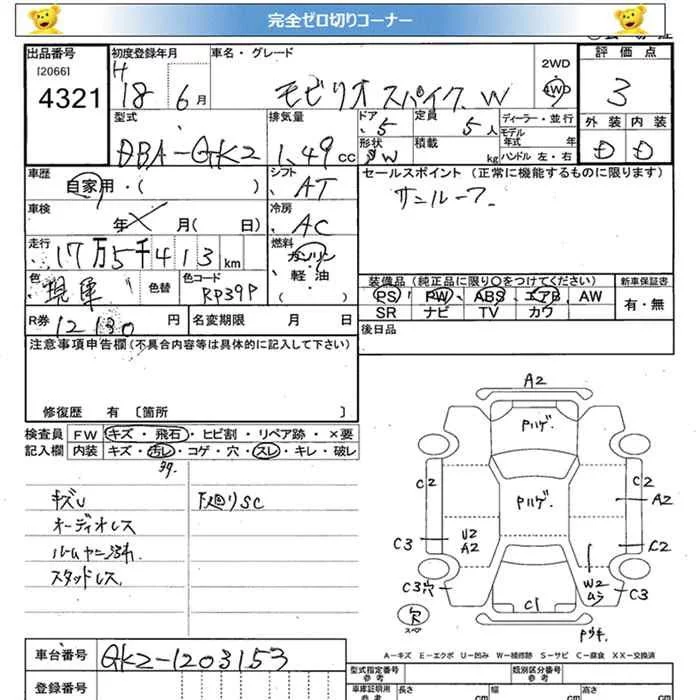 完全ゼロ切りコーナー
出品番号 [2066] 4321
初度登録年月 H 18年 6月
車名・グレード モビリオスパイク W
2WD 4WD
評価点 3
外装 D 内装 D
型式 DBA-GK2
排気量 1.49 CC
ドア 5 定員 5人
形状 SW 積載 kg
ディーラー・並行
モデル年式 年
ハンドル 左・右
車歴 自家用・( )
シフト AT
セールスポイント (正常に機能するものに限ります)
サンルーフ
車検 年 月( 日)
冷房 AC
走行 17万5千413 km
燃料 ガソリン・軽油 ( )
色 現車 色替
色コード RP39P
装備品 (純正品に限り○をつけてください)
PS PW ABS エアB AW
SR ナビ TV カワ
新車保証書 有・無
R券 12130 円
名変期限 月 日
後日品
注意事項申告欄 (不具合内容等は具体的に記入して下さい)
修復歴 有 〔箇所 〕
検査員記入欄
FW キズ・飛石・ヒビ割・リペア跡・×要
内装 キズ・汚レ・コゲ・穴・スレ・キレ・破レ
キズU
オーディオレス
ルームヤニ汚れ
スタッドレス
下回りSC
A2
Pハゲ
Pハゲ
C2
C2
A2
C3
U2
A2
C2
C3穴
W2
ムラ
C3
C1
欠
スペア
A-キズ E-エクボ U-凹み W-補修跡 S-サビ C-腐食 XX-交換済
車台番号 GK2-1203153
登録番号
型式指定番号 参考
類別区分番号 参考
車庫証明用 参考
長さ cm
幅 cm
高さ cm